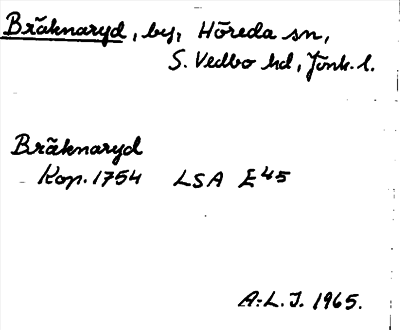 Bräknaryd, by, Höreda sn,
S. Vedbo hd, Jönk. l.
Bräknaryd
Kop. 1754 LSA E45
A.-L. J. 1965.